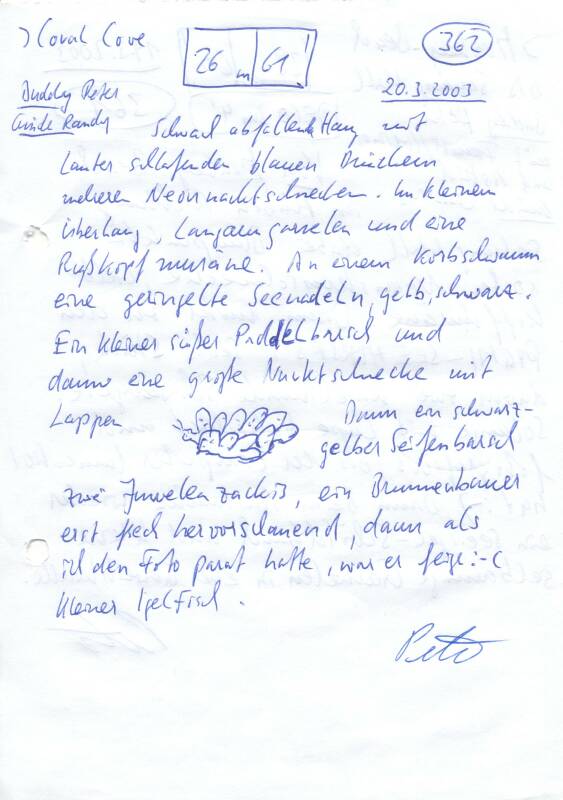 Coral Cove
26 m 61'
362
20.3.2003
Buddy Peter
Guide Randy
Schwach abfallende Hang mit
lauter schlafenden blauen Drückern
mehreren Neonnacktschnecken. Im kleinen
Überhang, Langarmgarnelen und eine
Rußkopfmuräne. An einem Korbschwamm
eine geringelte Seenadeln, gelb, schwarz.
Ein kleiner süßer Paddelbarsch und
dann eine große Nacktschnecke mit
Lappen
Dann ein schwarz-
gelber Seifenbarsch
zwei Juwelenzackis, ein Brunnenbauer
erst frech hervorschauend, dann als
ich den Foto parat hatte, war er feige :-(
kleiner Igelfisch.
Peter